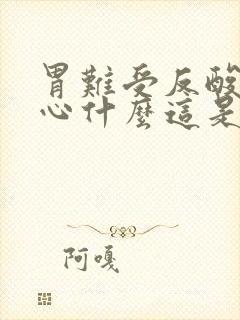 胃難受反酸
心什麼這是
阿嘎